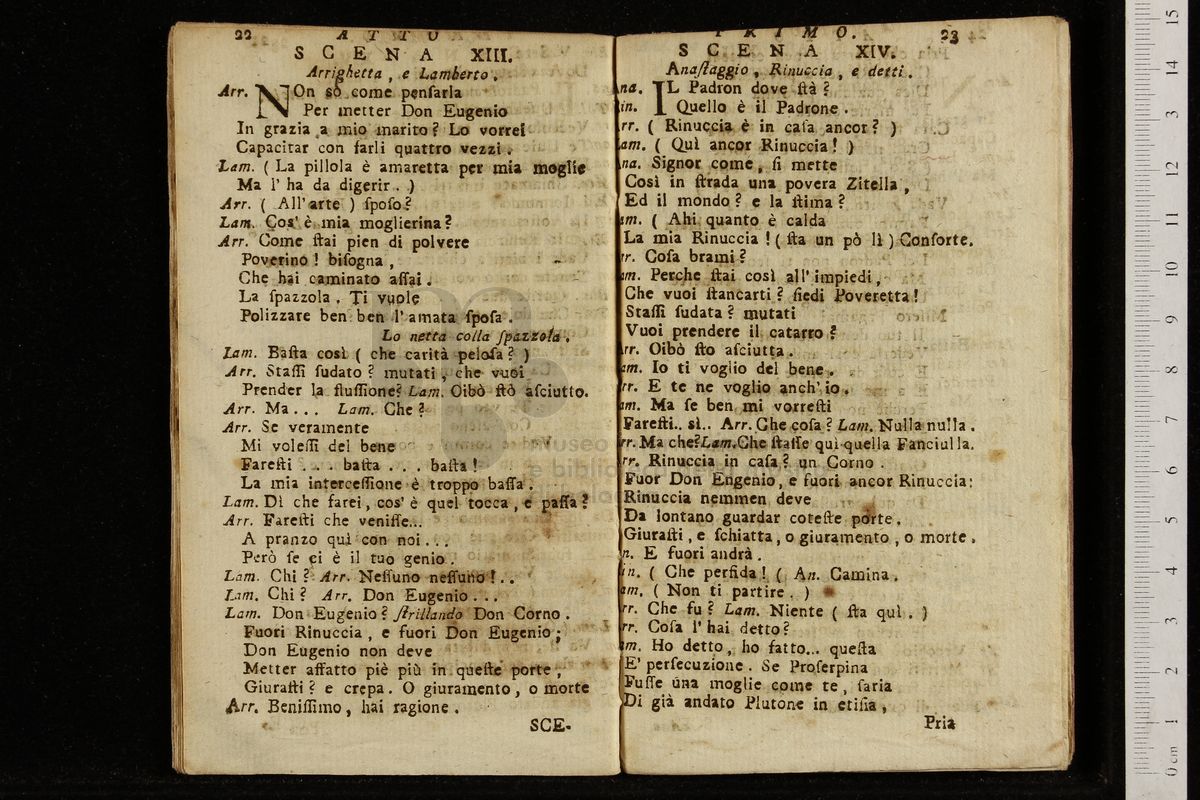 22 ATTO
SCENA XIII.
Arrighetta, e Lamberto.
Arr. NOn sò come penſarla
Per metter Don Eugenio
In grazia a mio marito? Lo vorrei
Capacitar con farli quattro vezzi.
Lam. ( La pillola è amaretta per mia moglie
Ma l' ha da digerir. )
Arr. ( All' arte ) ſpoſo?
Lam. Cos' è mia moglierina?
Arr. Come ſtai pien di polvere
Poverino! biſogna,
Che hai caminato aſſai.
La ſpazzola. Ti vuole
Polizzare ben ben l' amata ſpoſa.
Lo netta colla ſpazzola.
Lam. Baſta così ( che carità peloſa? )
Arr. Staſſi ſudato? mutati, che vuoi
Prender la fluſſione? Lam. Oibò ſtò aſciutto.
Arr. Ma... Lam. Che?
Arr. Se veramente
Mi voleſſi del bene
Fareſti ... baſta ... baſta!
La mia interceſſione è troppo baſſa.
Lam. Dì che farei, cos' è quel tocca, e paſſa?
Arr. Fareſti che veniſſe...
A pranzo quì con noi...
Però ſe ci è il tuo genio.
Lam. Chi? Arr. Neſſuno neſſuno!..
Lam. Chi? Arr. Don Eugenio...
Lam. Don Eugenio? ſtrillando Don Corno.
Fuori Rinuccia, e fuori Don Eugenio;
Don Eugenio non deve
Metter affatto piè più in queſte porte,
Giuraſti? e crepa. O giuramento, o morte
Arr. Beniſſimo, hai ragione.
SCE-
PRIMO. 23
SCENA XIV.
Anaſtaggio, Rinuccia, e detti.
na. IL Padron dove ſtà?
in. Quello è il Padrone.
rr. ( Rinuccia è in caſa ancor? )
am. ( Quì ancor Rinuccia! )
na. Signor come, ſi mette
Così in ſtrada una povera Zitella,
Ed il mondo? e la ſtima?
am. ( Ahi quanto è calda
La mia Rinuccia! ( ſta un pò lì ) Conſorte.
rr. Coſa brami?
am. Perche ſtai così all' impiedi,
Che vuoi ſtancarti? ſiedi Poveretta!
Staſſi ſudata? mutati
Vuoi prendere il catarro?
rr. Oibò ſto aſciutta.
am. Io ti voglio del bene.
rr. E te ne voglio anch' io.
am. Ma ſe ben mi vorreſti
Fareſti.. sì.. Arr. Che coſa? Lam. Nulla nulla.
rr. Ma che? Lam. Che ſtaſſe quì quella Fanciulla.
rr. Rinuccia in caſa? un Corno.
Fuor Don Engenio, e fuori ancor Rinuccia:
Rinuccia nemmen deve
Da lontano guardar coteſte porte.
Giuraſti, e ſchiatta, o giuramento, o morte.
n. E fuori andrà.
in. ( Che perfida! ( An. Camina.
am. ( Non ti partire. )
rr. Che fu? Lam. Niente ( ſta quì. )
rr. Coſa l' hai detto?
am. Ho detto, ho fatto... queſta
E' perſecuzione. Se Proſerpina
Fuſſe una moglie come te, ſaria
Di già andato Plutone in etiſia,
Pria